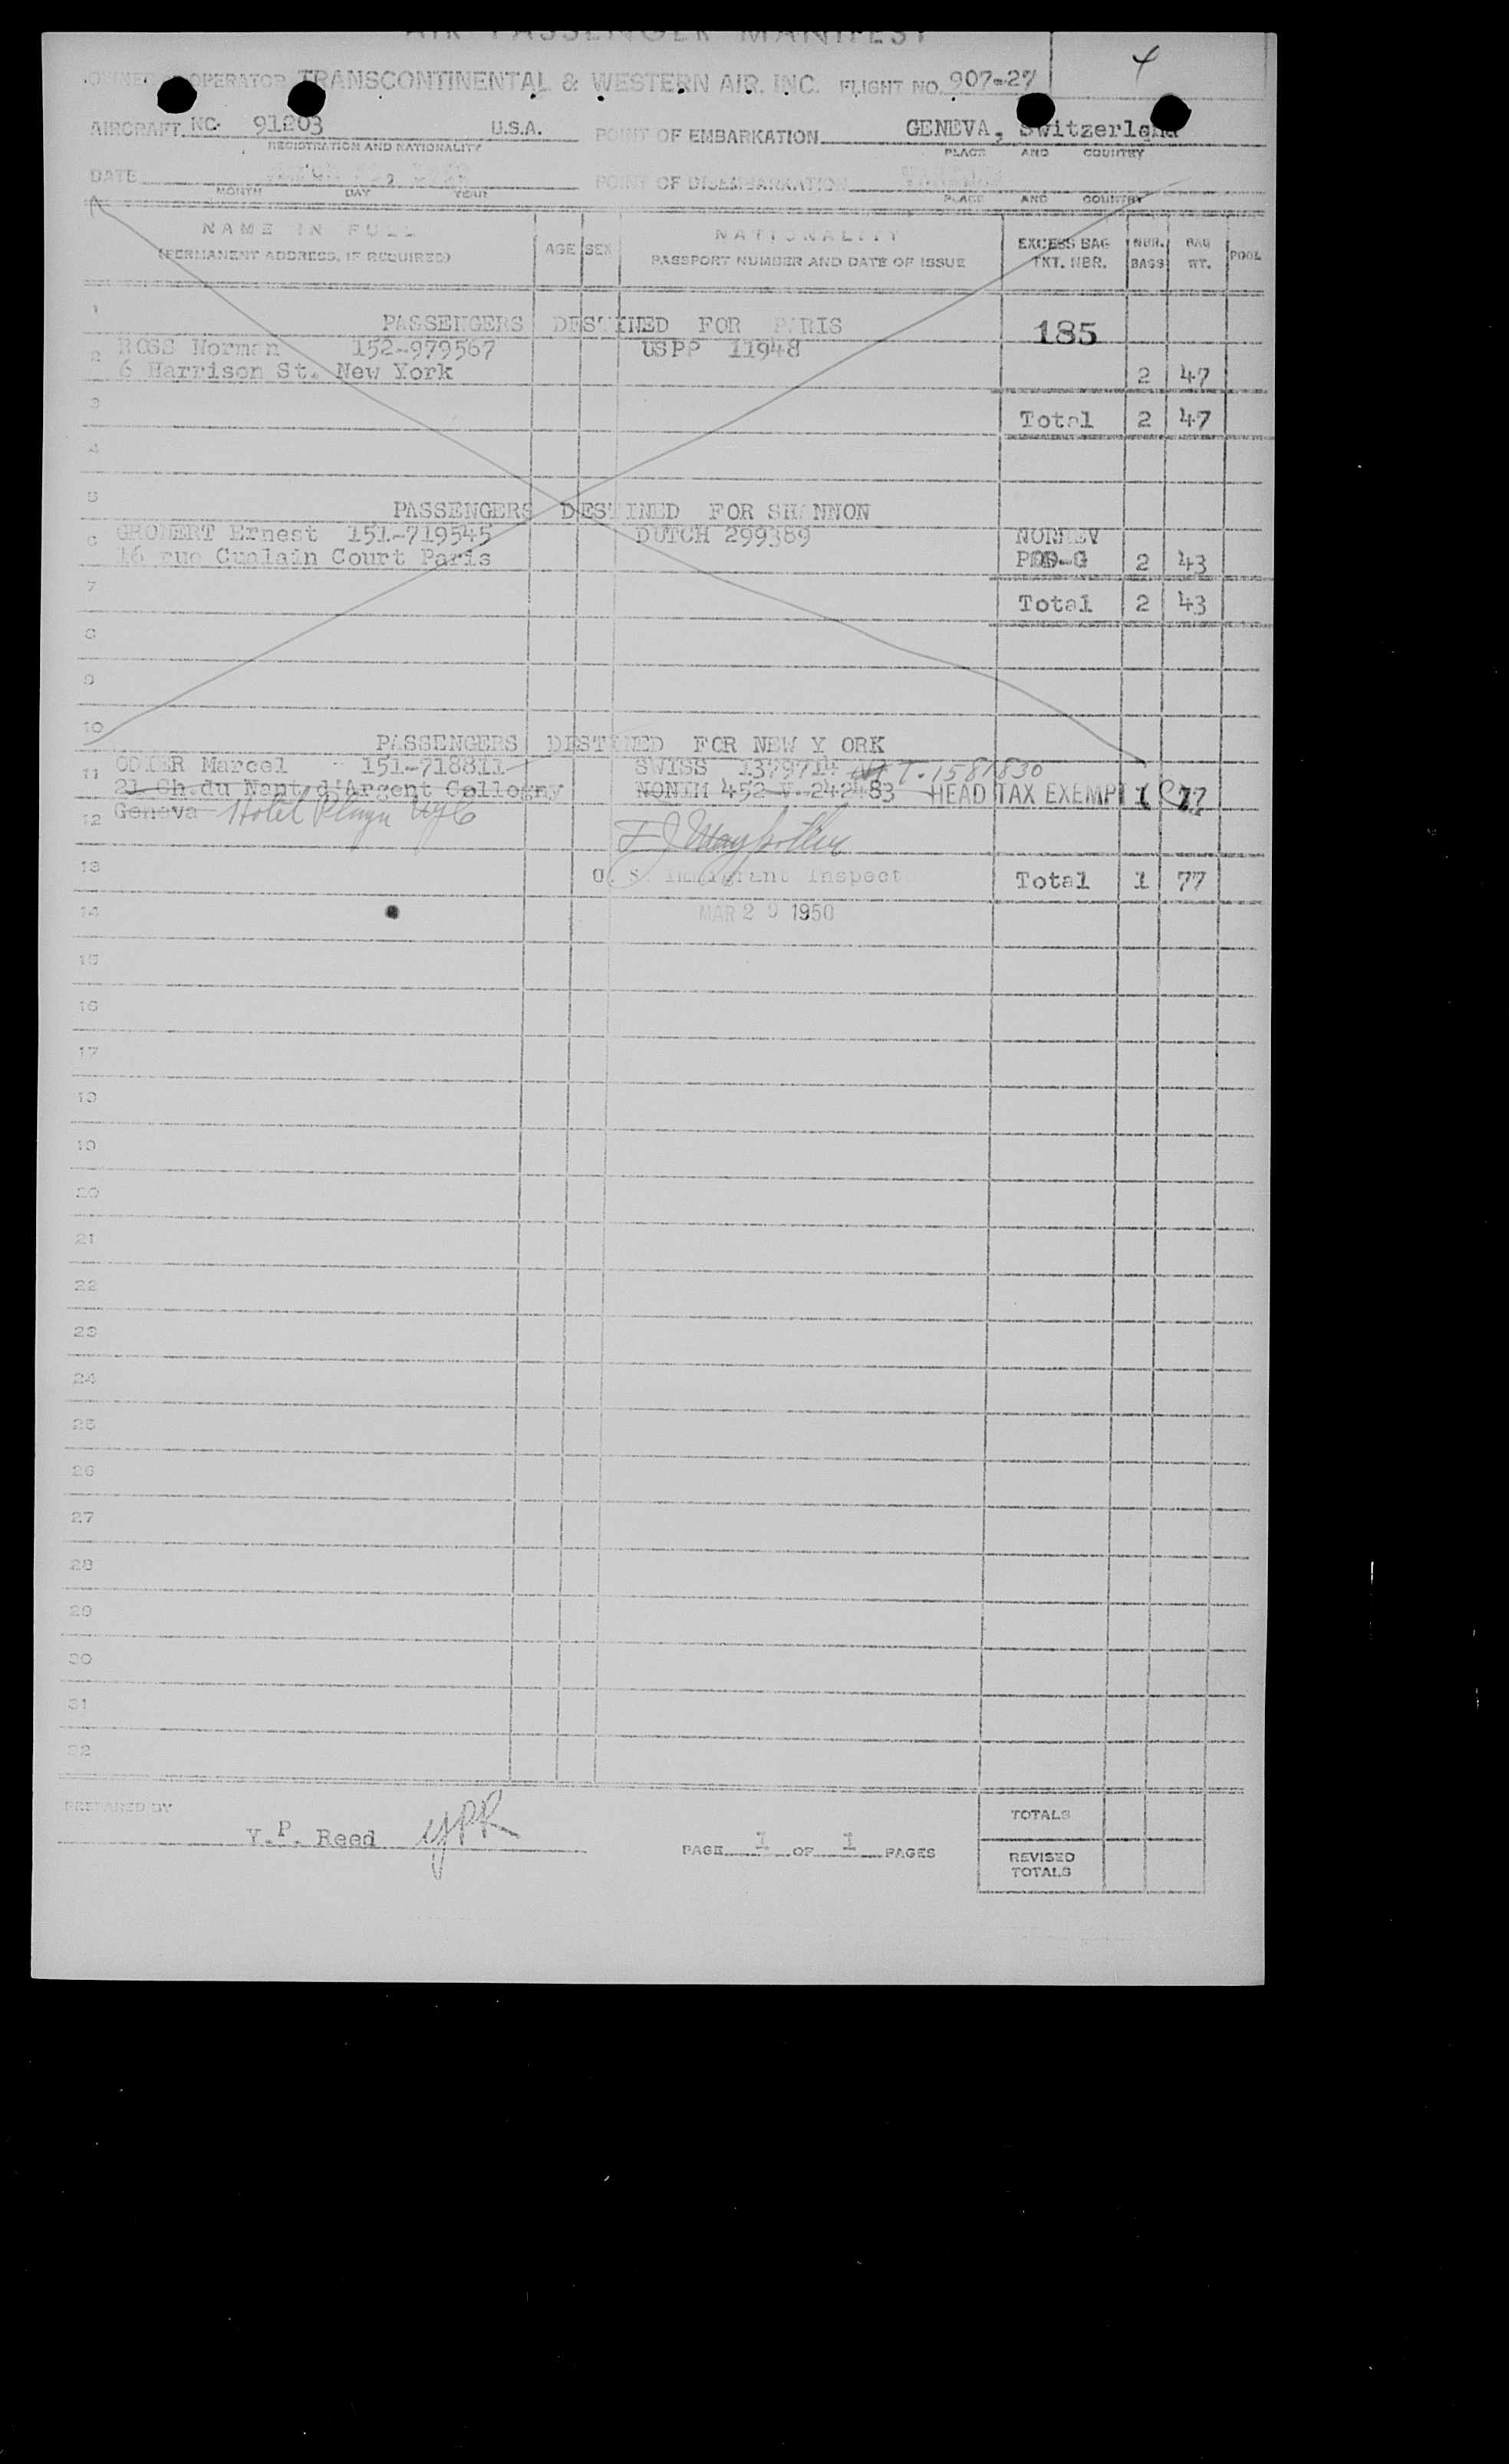 AIR PASSENGER MANIFEST
4
OPERATOR TRANSCONTINENTAL & WESTERN AIR. INC. FLIGHT NO. 907-27
AIRCRAFT NC. 91203 U.S.A. POINT OF EMBARKATION GENEVA, Switzerland
REGISTRATION AND NATIONALITY PLACE AND COUNTRY
DATE POINT OF DISEMBARKATION
MONTH DAY YEAR PLACE AND COUNTRY
NAME IN FULL NATIONALITY
(PERMANENT ADDRESS, IF REQUIRED) AGE SEX PASSPORT NUMBER AND DATE OF ISSUE EXCESS BAG TKT. NBR. NBR. BAGS BAG WT. POOL
1 PASSENGERS DESTINED FOR PARIS 185
2 ROSS Norman 152-979567 USPP 11948
6 Harrison St. New York 2 47
3 Total 2 47
4
5 PASSENGERS DESTINED FOR SHANNON
6 Ernest 151-719545 DUTCH 299389 NONREV
16 rue Court Paris 2 43
7 Total 2 43
8
9
10 PASSENGERS DESTINED FOR NEW Y ORK
11 ODIER Marcel 151-718811 SWISS T. 1581830
21 Ch.du Nant d'Argent NONIM 452 V 242483 HEAD TAX EXEMPT 1 77
12 Geneva Hotel NYC
13 U. S. Immigrant Inspect Total 1 77
14 MAR 1950
15
16
17
18
19
20
21
22
23
24
25
26
27
28
29
30
31
32
PREPARED BY TOTALS
Y.P. Reed YPR PAGE 1 OF 1 PAGES
REVISED TOTALS